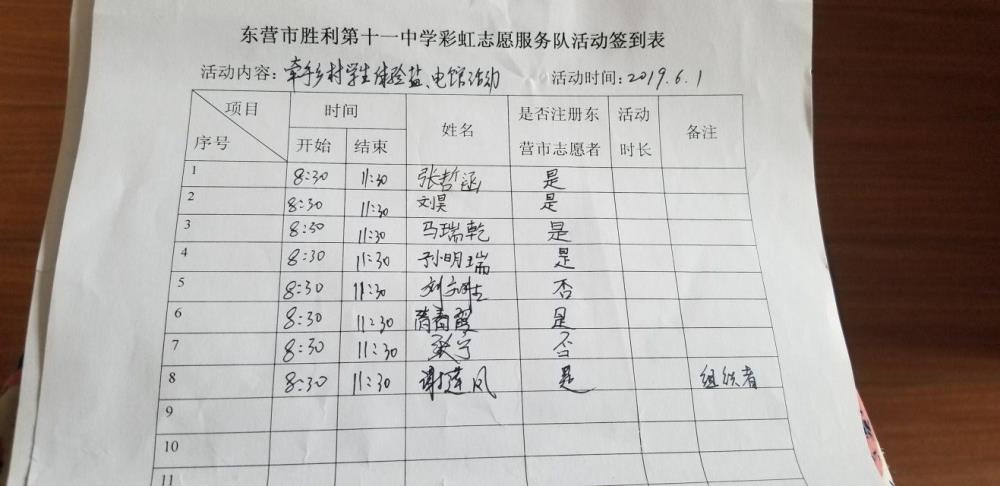 东营市胜利第十一中学彩虹志愿服务队活动签到表
活动内容：牵手乡村学生体验盐、电馆活动 活动时间：2019.6.1
项目 时间 姓名 是否注册东 活动 备注
序号 开始 结束 营市志愿者 时长
1 8:30 11:30 张哲涵 是
2 8:30 11:30 刘昊 是
3 8:30 11:30 马瑞乾 是
4 8:30 11:30 孙明瑞 是
5 8:30 11:30 否
6 8:30 11:30 是
7 8:30 11:30 否
8 8:30 11:30 谢莲凤 是 组织者
9
10
11